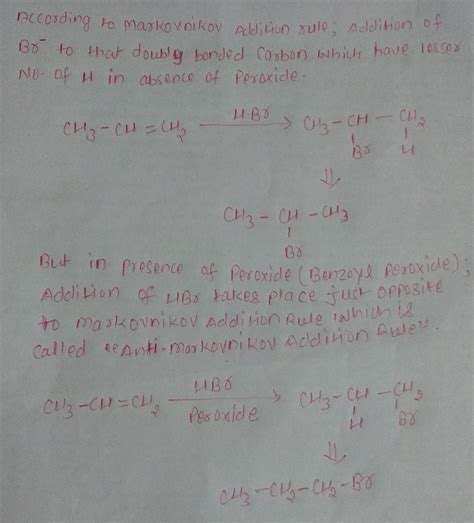 According to Markovnikov Addition rule; Addition of
Br⁻ to that doubly bonded Carbon which have lesser
No. of H in absence of Peroxide.
CH₃-CH=CH₂ HBr → CH₃-CH-CH₂
Br H
⇓
CH₃-CH-CH₃
Br
But in presence of Peroxide (Benzoyl Peroxide);
Addition of HBr takes place just opposite
to Markovnikov Addition Rule which is
called "Anti-Markovnikov Addition Rule".
CH₃-CH=CH₂ HBr Peroxide → CH₃-CH-CH₂
H Br
⇓
CH₃-CH₂-CH₂-Br